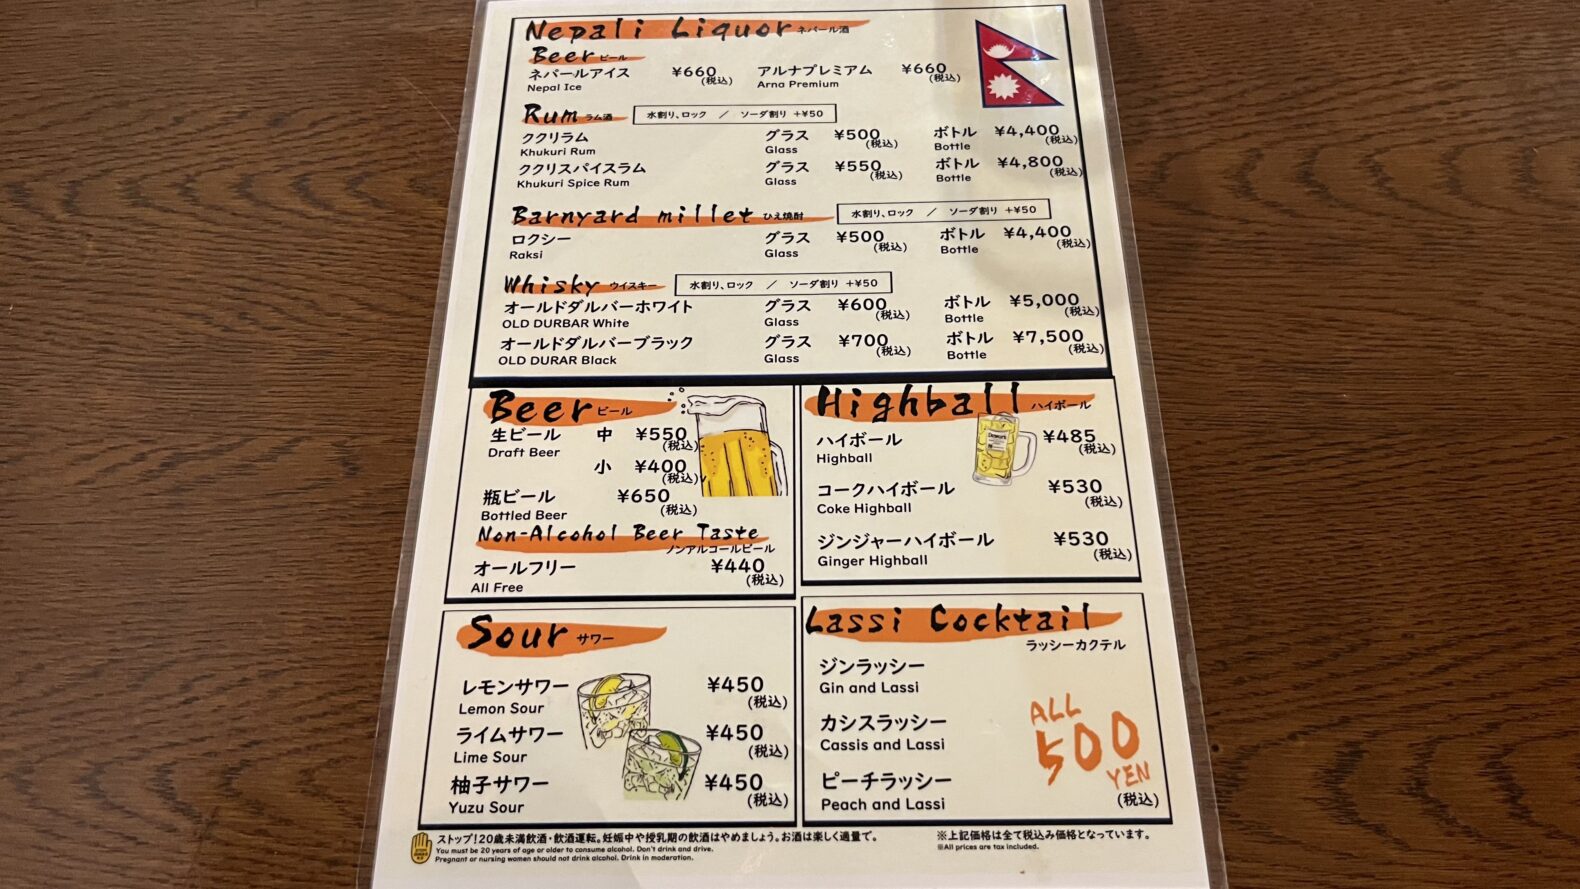 Nepali Liquor ネパール酒
Beer ビール
ネパールアイス ¥660(税込) アルナプレミアム ¥660(税込)
Nepal Ice Arna Premium
Rum ラム酒 水割り、ロック / ソーダ割り +¥50
ククリラム グラス ¥500(税込) ボトル ¥4,400(税込)
Khukuri Rum Glass Bottle
ククリスパイスラム グラス ¥550(税込) ボトル ¥4,800(税込)
Khukuri Spice Rum Glass Bottle
Barnyard millet ひえ焼酎 水割り、ロック / ソーダ割り +¥50
ロクシー グラス ¥500(税込) ボトル ¥4,400(税込)
Raksi Glass Bottle
Whisky ウイスキー 水割り、ロック / ソーダ割り +¥50
オールドダルバーホワイト グラス ¥600(税込) ボトル ¥5,000(税込)
OLD DURBAR White Glass Bottle
オールドダルバーブラック グラス ¥700(税込) ボトル ¥7,500(税込)
OLD DURAR Black Glass Bottle
Beer ビール
生ビール 中 ¥550(税込)
Draft Beer
小 ¥400(税込)
瓶ビール ¥650(税込)
Bottled Beer
Non-Alcohol Beer Taste
ノンアルコールビール
オールフリー ¥440(税込)
All Free
Highball ハイボール
ハイボール ¥485(税込)
Highball
コークハイボール ¥530(税込)
Coke Highball
ジンジャーハイボール ¥530(税込)
Ginger Highball
Sour サワー
レモンサワー ¥450(税込)
Lemon Sour
ライムサワー ¥450(税込)
Lime Sour
柚子サワー ¥450(税込)
Yuzu Sour
Lassi Cocktail
ラッシーカクテル
ジンラッシー
Gin and Lassi
カシスラッシー
Cassis and Lassi
ピーチラッシー
Peach and Lassi
ALL
500
YEN
(税込)
ストップ!20歳未満飲酒・飲酒運転。妊娠中や授乳期の飲酒はやめましょう。お酒は楽しく適量で。
You must be 20 years of age or older to consume alcohol. Don't drink and drive.
Pregnant or nursing women should not drink alcohol. Drink in moderation.
※上記価格は全て税込み価格となっています。
※All prices are tax included.